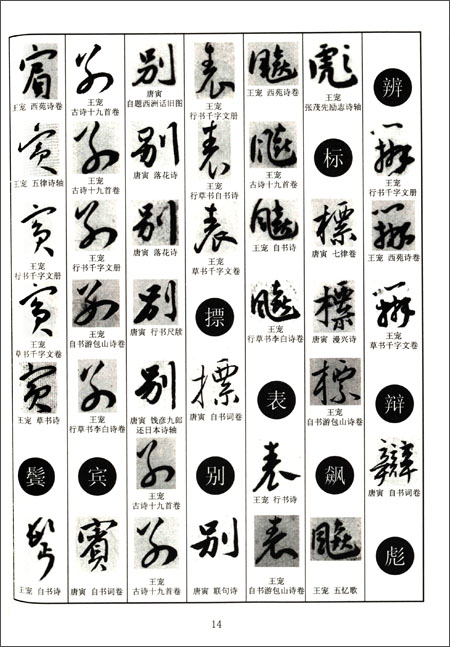 辨
辨
王宠
行书千字文册
辨
王宠 西苑诗卷
辨
王宠
草书千字文卷
辩
辯
唐寅 自书词卷
彪
彪
王宠
张茂先励志诗轴
标
標
唐寅 七律卷
標
唐寅 漫兴诗
標
王宠
自书游包山诗卷
飙
飈
王宠 五忆歌
飈
王宠 西苑诗卷
飈
王宠
古诗十九首卷
飈
王宠 自书诗
飈
王宠
行草书李白诗卷
表
表
王宠 行书诗
表
王宠
自书游包山诗卷
表
王宠
行书千字文册
表
王宠
行草书自书诗
表
王宠
草书千字文卷
摽
摽
唐寅 自书词卷
别
别
唐寅 联句诗
别
唐寅
自题西洲话旧图
别
唐寅 落花诗
别
唐寅 落花诗
别
唐寅 行书尺牍
别
唐寅 饯彦九郎
还日本诗轴
别
王宠
古诗十九首卷
别
王宠
古诗十九首卷
别
王宠
古诗十九首卷
别
王宠
古诗十九首卷
别
王宠
行书千字文册
别
王宠
自书游包山诗卷
别
王宠
行草书李白诗卷
宾
賓
唐寅 自书词卷
賓
王宠 西苑诗卷
賓
王宠 五律诗轴
賓
王宠
行书千字文册
賓
王宠
草书千字文卷
賓
王宠 草书诗
鬓
鬓
王宠 自书诗
14